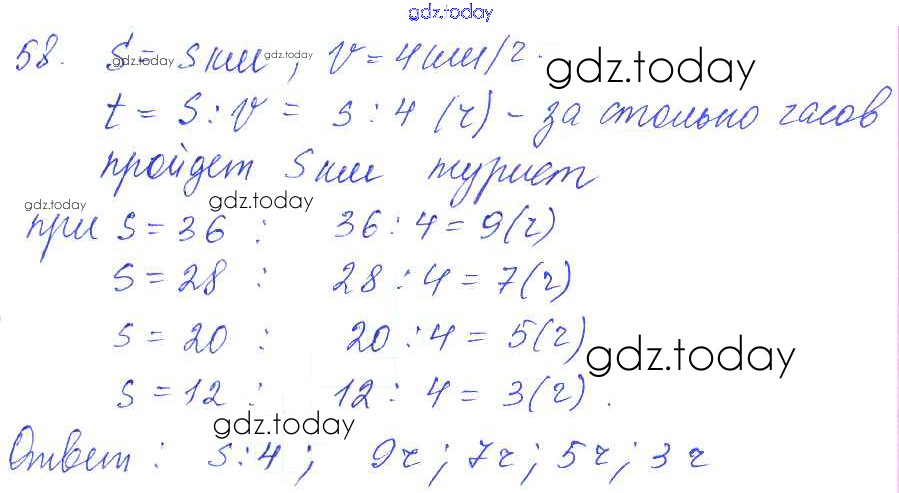 gdz.today
58. S = s км, v = 4 км/ч.
gdz.today gdz.today gdz.today
t = s : v = s : 4 (ч) – за столько часов
пройдет s км турист
gdz.today gdz.today
при s = 36 : 36 : 4 = 9 (ч)
s = 28 : 28 : 4 = 7 (ч)
s = 20 : 20 : 4 = 5 (ч)
gdz.today
s = 12 : 12 : 4 = 3 (ч).
gdz.today
Ответ : s : 4 ; 9 ч ; 7 ч ; 5 ч ; 3 ч